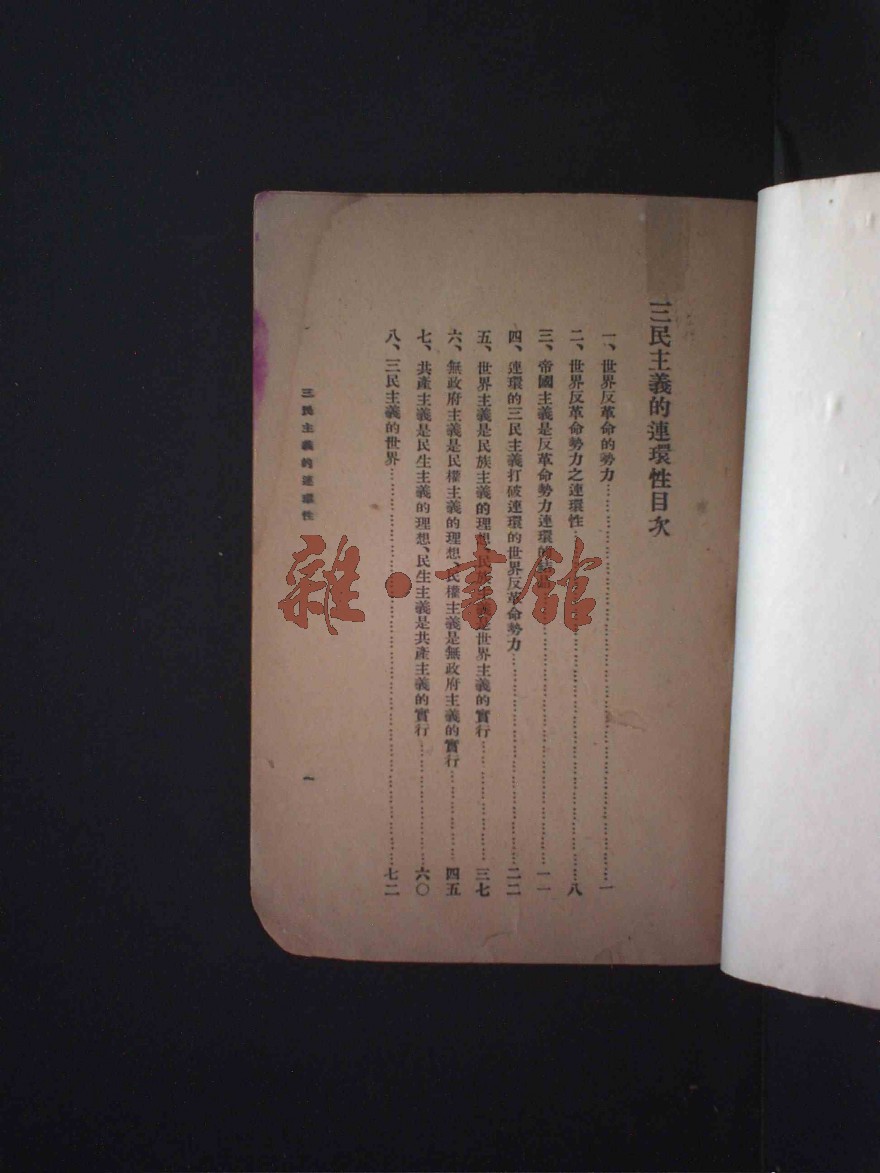 三民主義的連環性目次
一、世界反革命的勢力……一
二、世界反革命勢力之連環性……八
三、帝國主義是反革命勢力連環的……一一
四、連環的三民主義打破連環的世界反革命勢力……二二
五、世界主義是民族主義的理想、民族主義是世界主義的實行……三七
六、無政府主義是民權主義的理想、民權主義是無政府主義的實行……四五
七、共產主義是民生主義的理想、民生主義是共產主義的實行……六〇
八、三民主義的世界……七二
三民主義的連環性
一
雜·書館